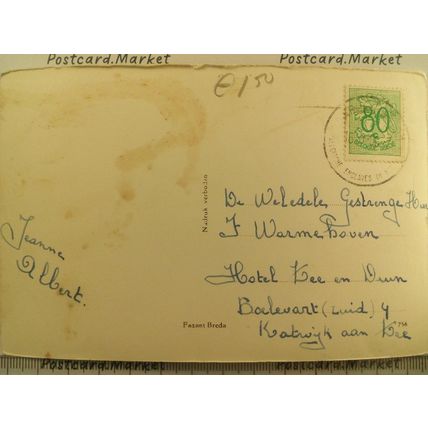 Postcard.Market Postcard.Market
€150
80
Nadruk verboden
De Weledele Gestrenge Heer
F Warmenhoven
Jeanne
Albert.
Hotel Zee en Duin
Boelevart (zuid) 4
Katwijk aan Zee
Fazant Breda
Postcard.Market Postcard.Market